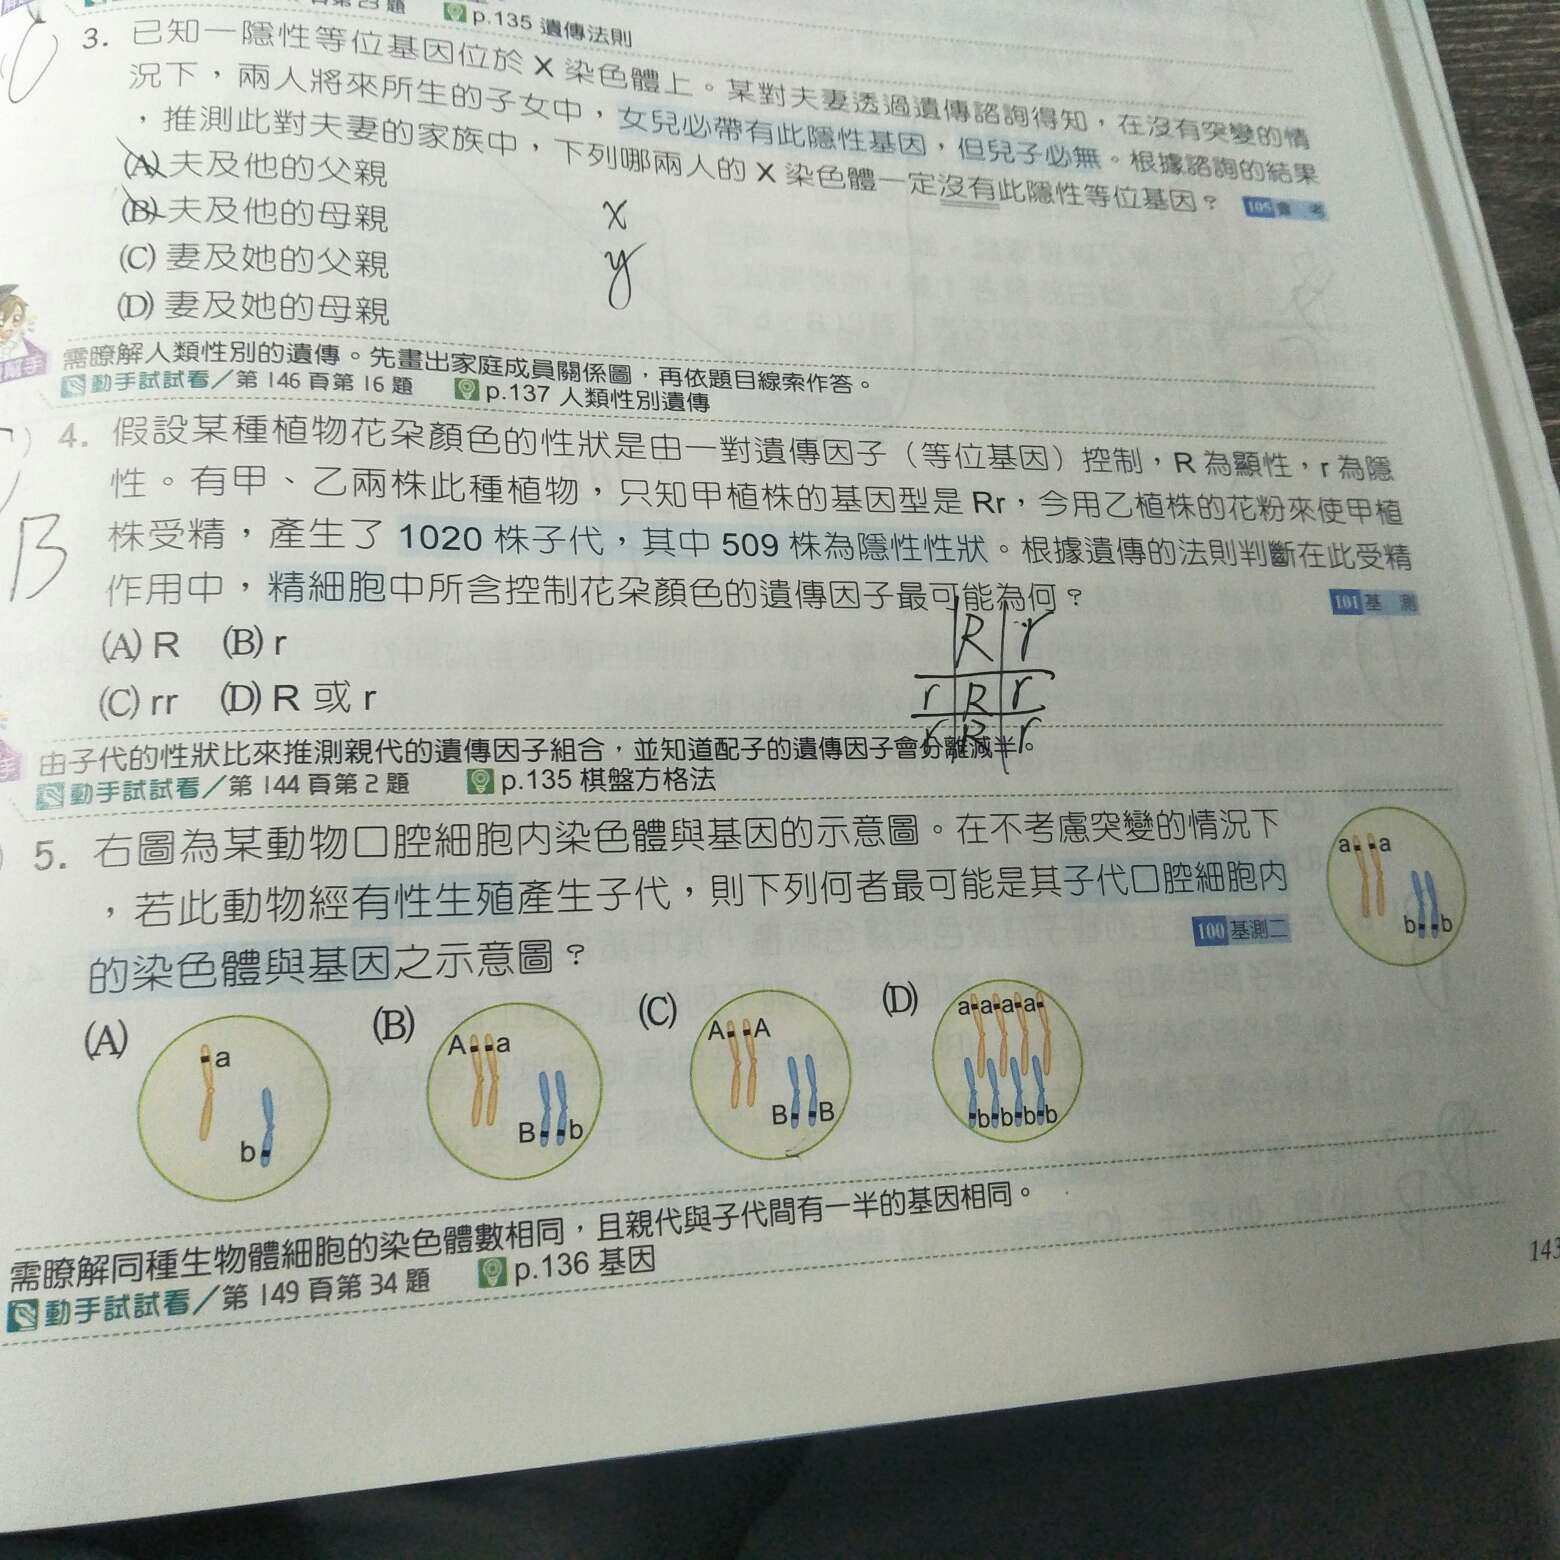 p.135 遺傳法則
3. 已知一隱性等位基因位於 X 染色體上。某對夫妻透過遺傳諮詢得知，在沒有突變的情
況下，兩人將來所生的子女中，女兒必帶有此隱性基因，但兒子必無。根據諮詢的結果
，推測此對夫妻的家族中，下列哪兩人的 X 染色體一定沒有此隱性等位基因？ 105 會 考
(A) 夫及他的父親
(B) 夫及他的母親
(C) 妻及她的父親
(D) 妻及她的母親
x
y
需瞭解人類性別的遺傳。先畫出家庭成員關係圖，再依題目線索作答。
動手試試看／第 146 頁第 16 題 p.137 人類性別遺傳
4. 假設某種植物花朵顏色的性狀是由一對遺傳因子（等位基因）控制，R 為顯性，r 為隱
性。有甲、乙兩株此種植物，只知甲植株的基因型是 Rr，今用乙植株的花粉來使甲植
株受精，產生了 1020 株子代，其中 509 株為隱性性狀。根據遺傳的法則判斷在此受精
作用中，精細胞中所含控制花朵顏色的遺傳因子最可能為何？ 101 基 測
B
(A) R (B) r
(C) rr (D) R 或 r
R r
r R r
r R r
由子代的性狀比來推測親代的遺傳因子組合，並知道配子的遺傳因子會分離減半。
動手試試看／第 144 頁第 2 題 p.135 棋盤方格法
5. 右圖為某動物口腔細胞內染色體與基因的示意圖。在不考慮突變的情況下
，若此動物經有性生殖產生子代，則下列何者最可能是其子代口腔細胞內
的染色體與基因之示意圖？ 100 基測二
a a
b b
(A) a b
(B) A a B b
(C) A A B B
(D) a a a a b b b b
需瞭解同種生物體細胞的染色體數相同，且親代與子代間有一半的基因相同。
動手試試看／第 149 頁第 34 題 p.136 基因
143